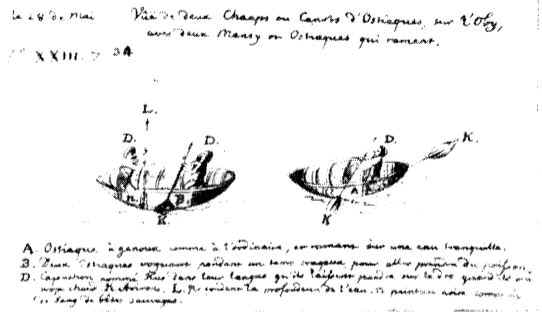 le 28 de Mai
Vüe de deux Chaaps ou Canots d'Ostiaques, sur l'Oby,
avec deux Mansy ou Ostiaques qui rament.
XXIII. 3A
L.
D. D. D. K.
B.
K. K
A. Ostiaque à genoux comme à l'ordinaire, et ramant sur une eau tranquille.
B. Deux Ostiaques voguant pendant un tems orageux pour aller prendre du poisson.
D. Capuchon nommé dans leur langue qu'ils laissent pendre sur le dos quand ils ont
trop chaud. K. Avirons. L. sondent la profondeur de l'eau. peinture noire comme
de sang de bêtes sauvages.